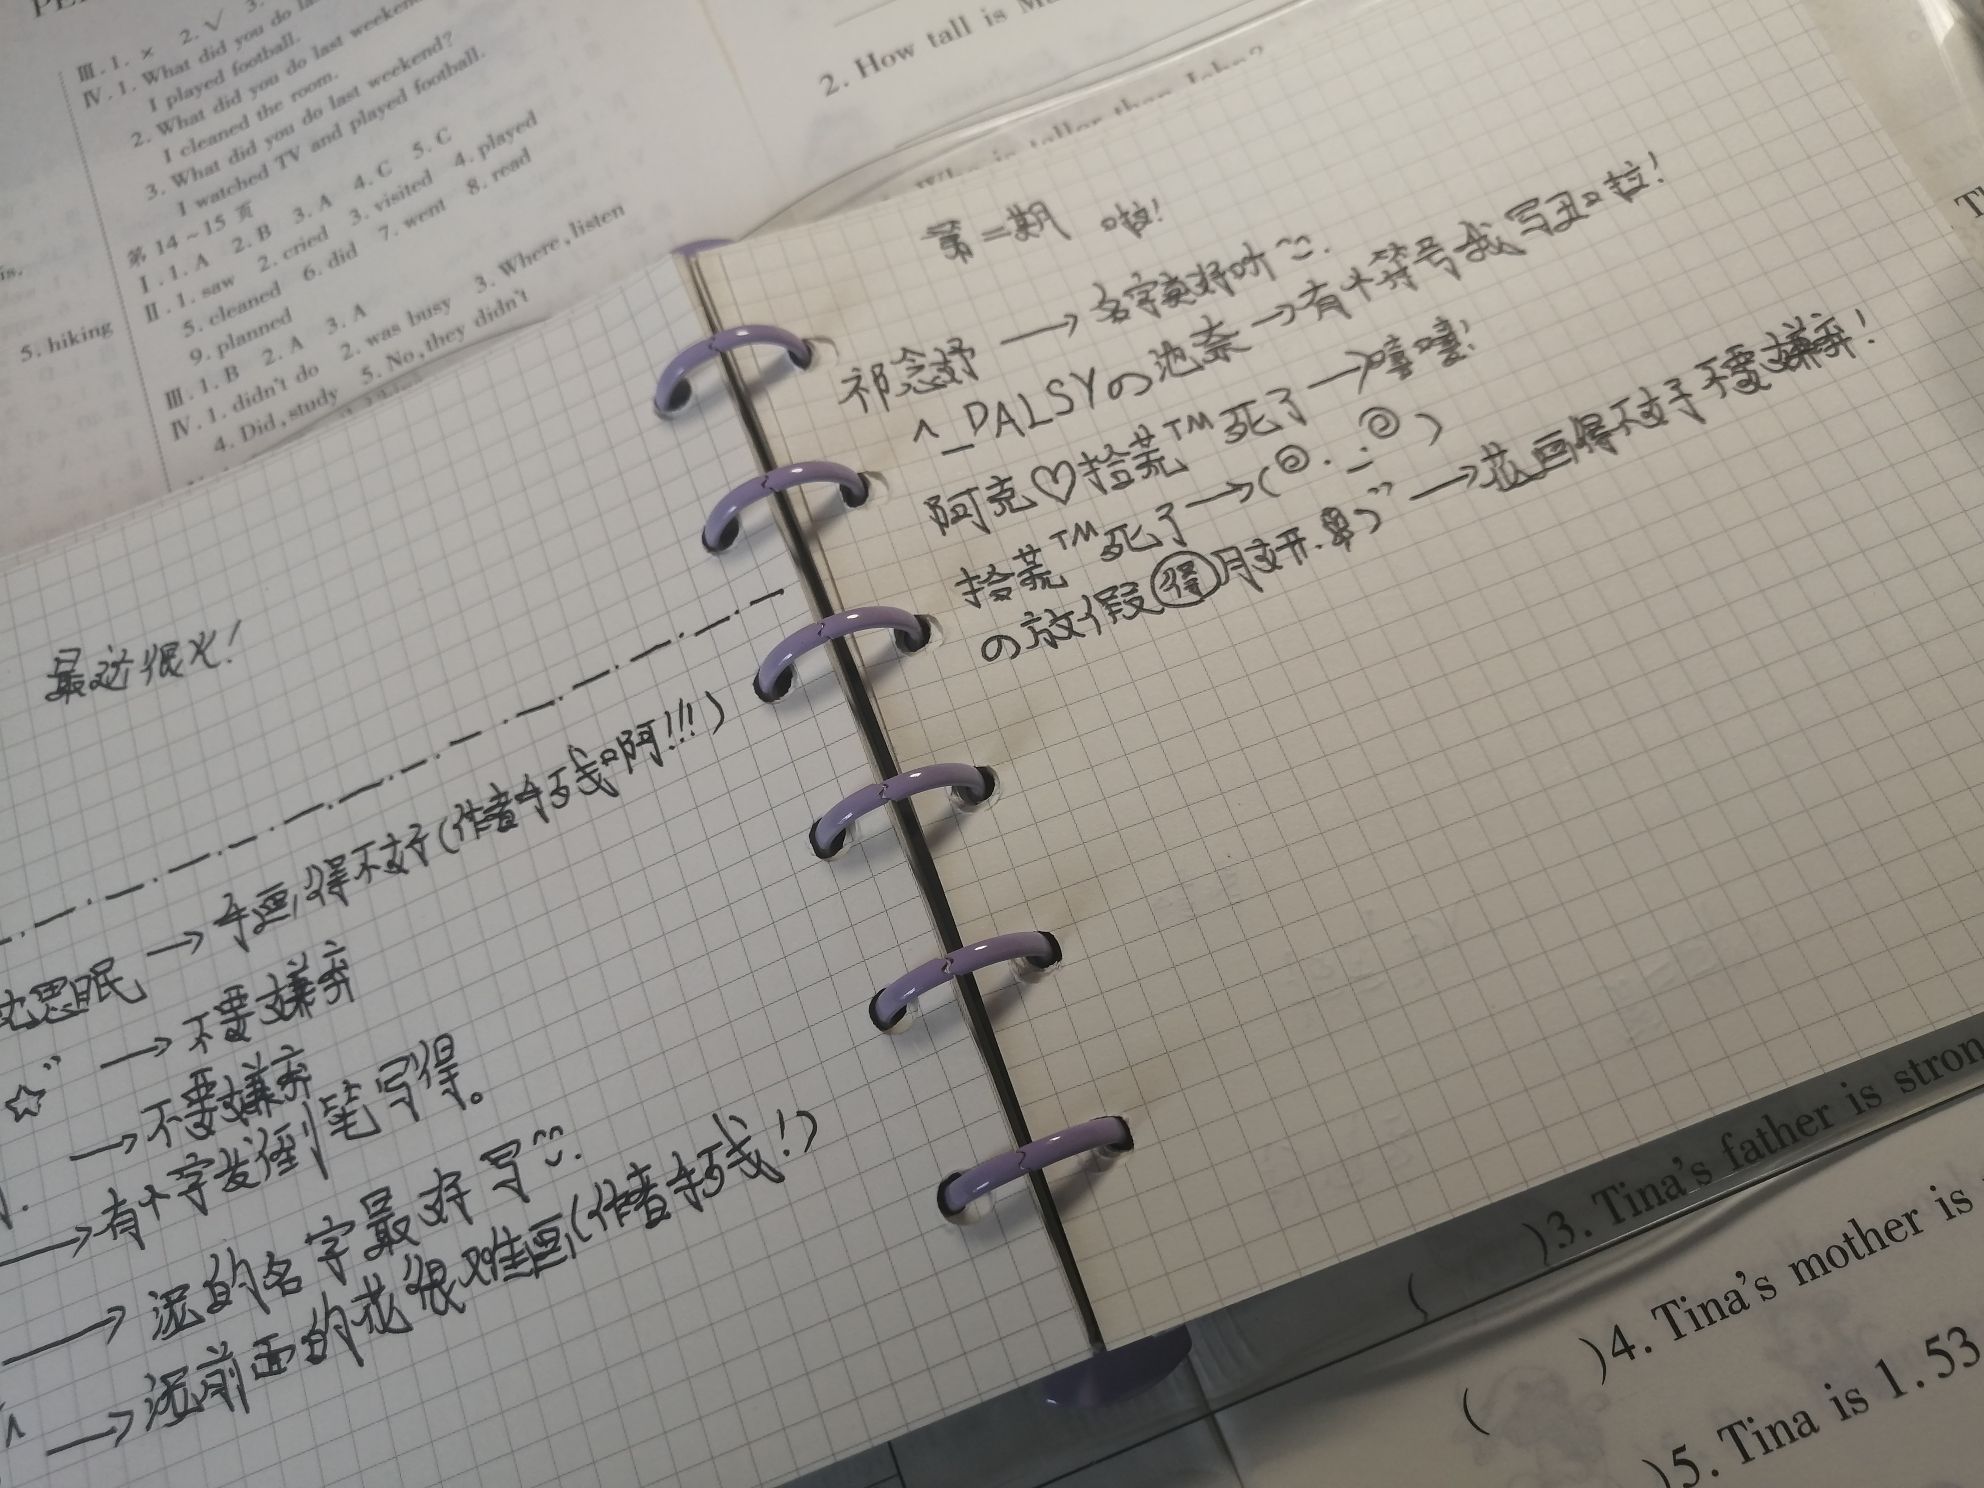 Ⅲ.1.× 2.√ 3.
Ⅳ.1. What did you do la
I played football.
2. What did you do last weeken
I cleaned the room.
3. What did you do last weekend?
I watched TV and played football.
第 14～15 页
Ⅰ.1. A 2. B 3. A 4. C 5. C
Ⅱ.1. saw 2. cried 3. visited 4. played
5. cleaned 6. did 7. went 8. read
9. planned
Ⅲ.1. B 2. A 3. A
Ⅳ.1. didn't do 2. was busy 3. Where, listen
4. Did, study 5. No, they didn't
5. hiking
2. How tall is Ma
最近很火!
思眠 → 手画得不好(作者手残啊!!!)
☆” → 不要嫌弃
→ 不要嫌弃
→ 有个字发倒笔写得。
→ 泥的名字最好写
→ 泥前面的花很难画(作者手残!)
第二期 啦!
祁念妤 → 名字真好听
^_DALSYの池奈 → 有个符号我写丑啦!
阿克♡拾荒™死了 → 嘻嘻!
拾荒™死了 →
の放假得月好开. → 花画得不好不要嫌弃!
)3. Tina's father is stron
( )4. Tina's mother is
( )5. Tina is 1.53